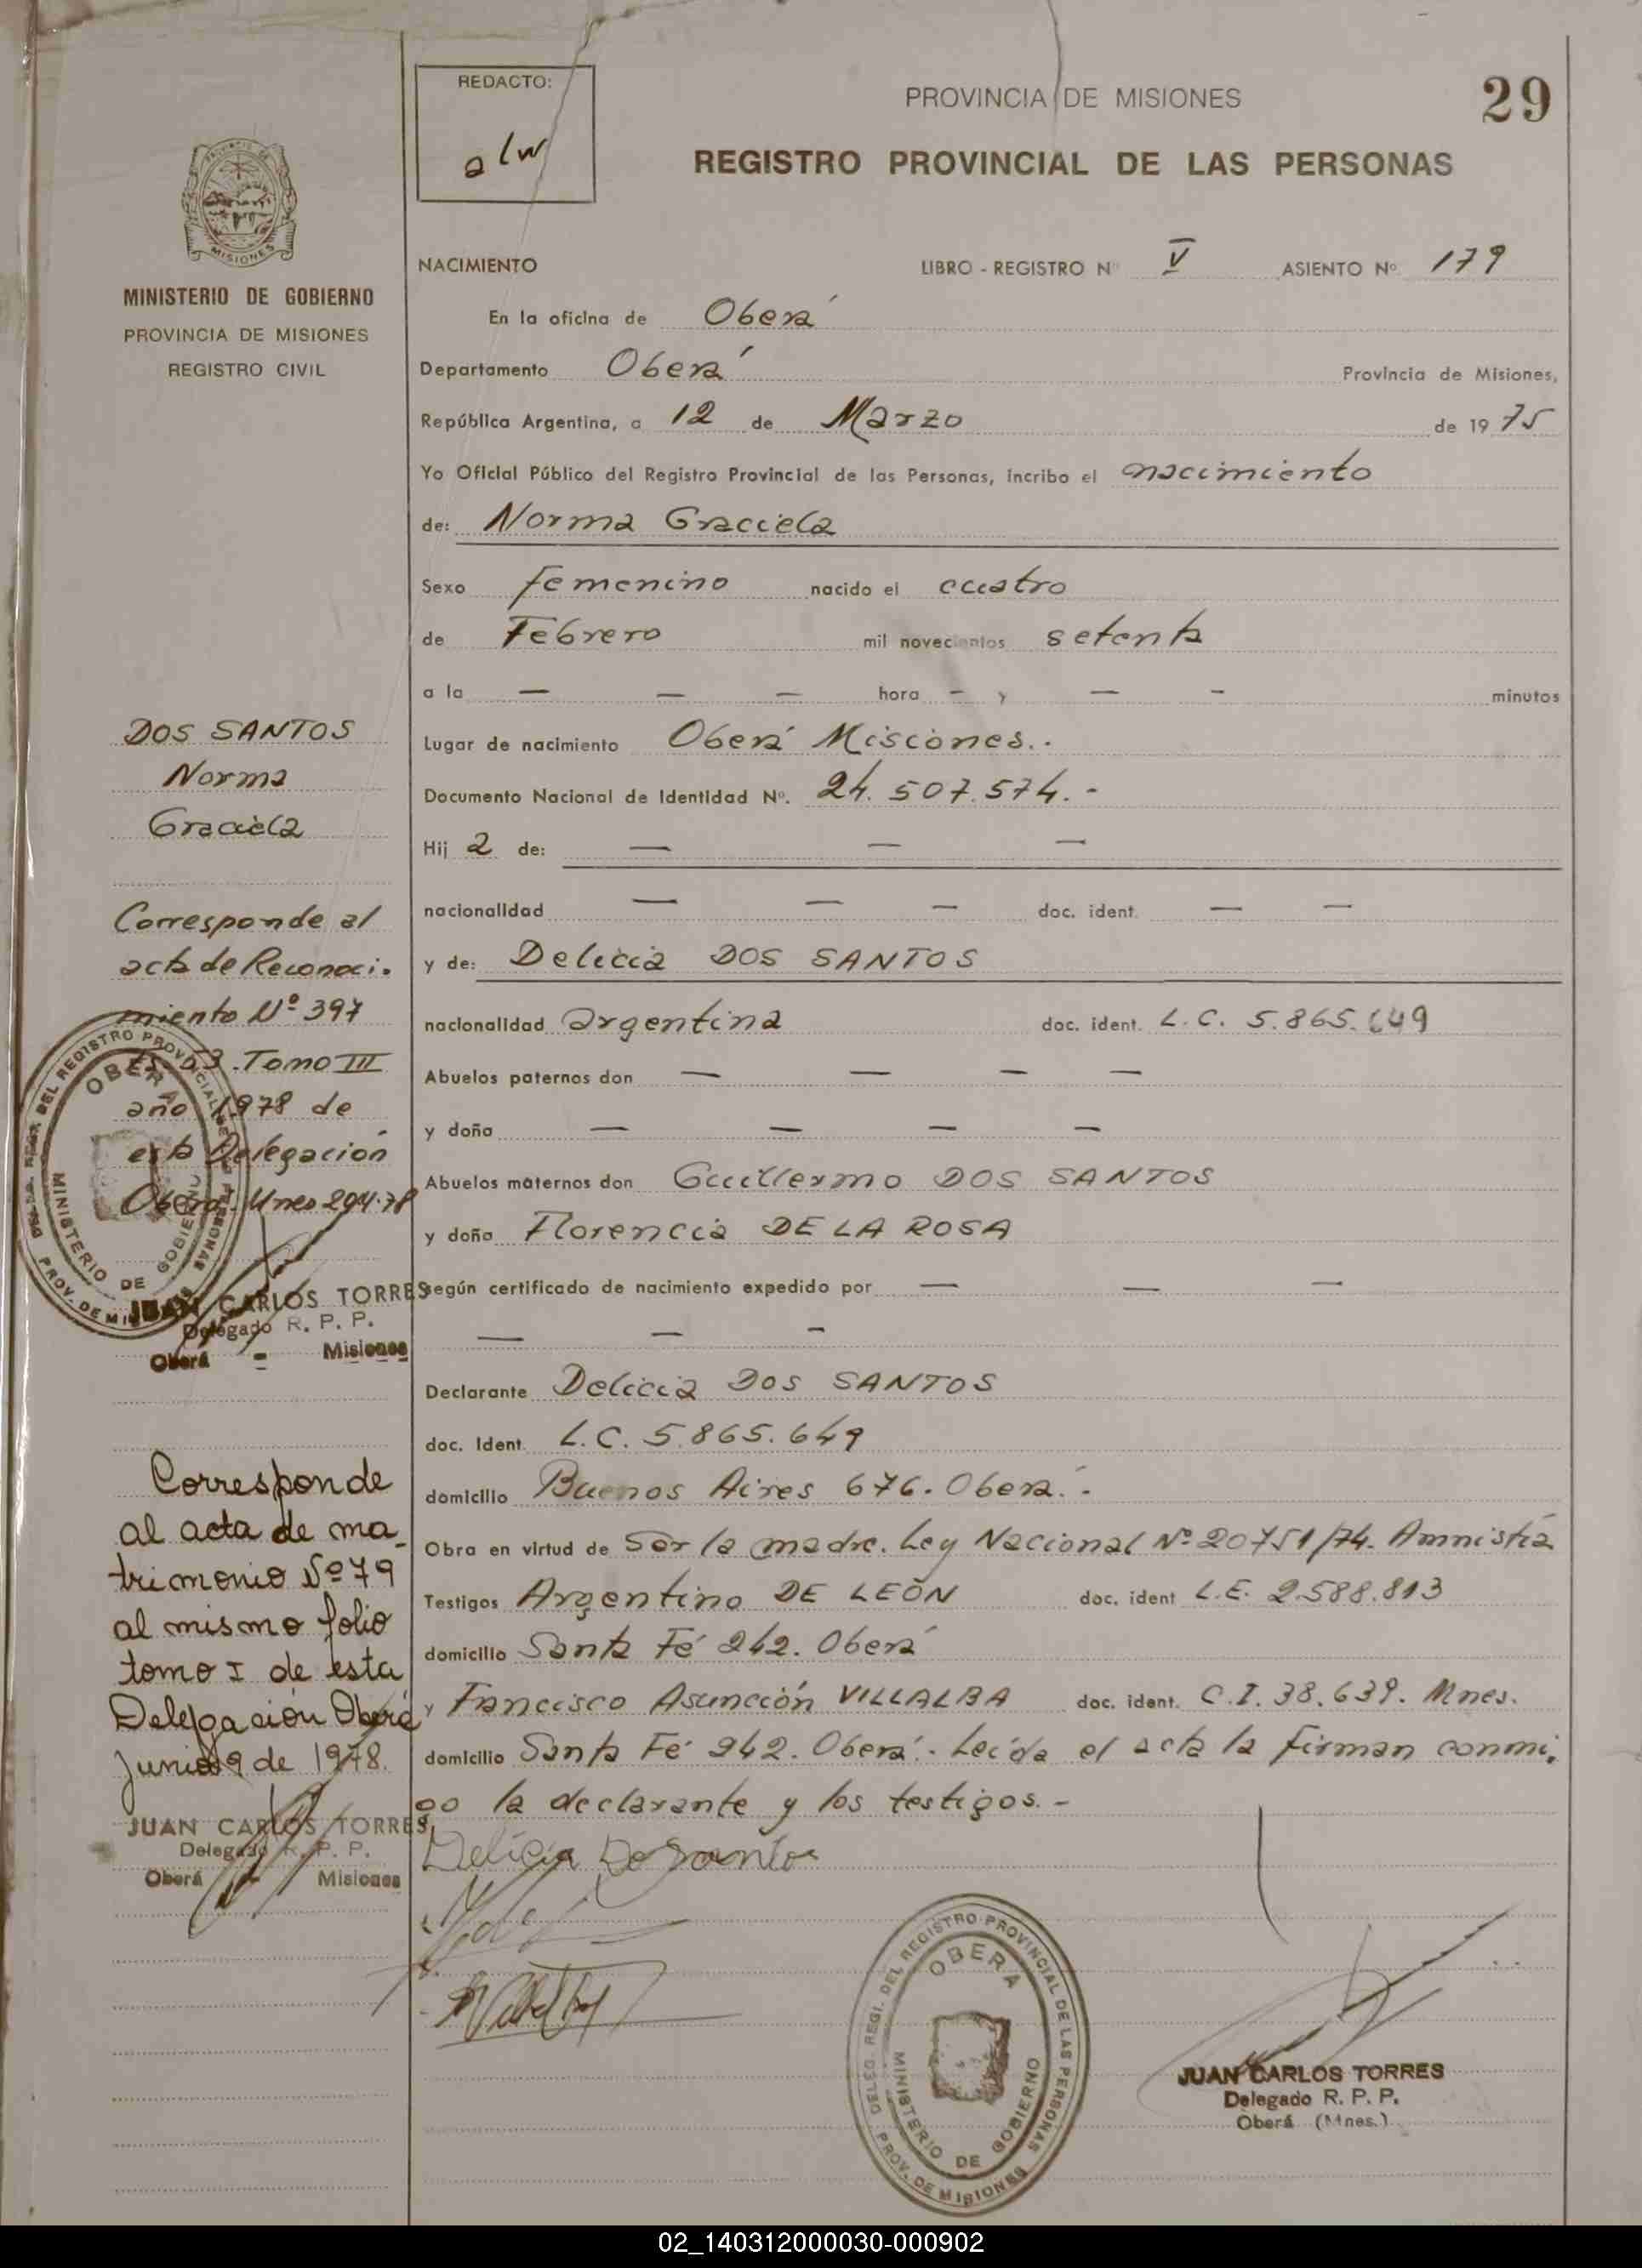 REDACTO:
alw
PROVINCIA DE MISIONES
29
REGISTRO PROVINCIAL DE LAS PERSONAS
MISIONES
MINISTERIO DE GOBIERNO
PROVINCIA DE MISIONES
REGISTRO CIVIL
NACIMIENTO LIBRO - REGISTRO Nº V ASIENTO Nº 179
En la oficina de Oberá
Departamento Oberá Provincia de Misiones,
República Argentina, a 12 de Marzo de 19 75
Yo Oficial Público del Registro Provincial de las Personas, incribo el nacimiento
de: Norma Graciela
Sexo femenino nacido el cuatro
de Febrero mil novecientos setenta
a la — — — hora - y — - minutos
Lugar de nacimiento Oberá Misiones.-
Documento Nacional de Identidad Nº. 24.507.574.-
Hij a de: — — —
nacionalidad — — — doc. ident. — —
y de: Delicia DOS SANTOS
nacionalidad argentina doc. ident. L.C. 5.865.649
Abuelos paternos don — — — —
y doña — — — —
Abuelos maternos don Guillermo DOS SANTOS
y doña Florencia DE LA ROSA
según certificado de nacimiento expedido por — — —
— — -
Declarante Delicia DOS SANTOS
doc. Ident. L.C. 5.865.649
domicilio Buenos Aires 676. Oberá.-
Obra en virtud de Ser la madre. Ley Nacional Nº 20751/74. Amnistía
Testigos Argentino DE LEÓN doc. ident L.E. 2.588.813
domicilio Santa Fé 242. Oberá
y Francisco Asunción VILLALBA doc. ident. C.I. 38.639. Mnes.
domicilio Santa Fé 242. Oberá.- Leída el acta la firman conmi-
go la declarante y los testigos.-
Delicia Do Santos
DOS SANTOS
Norma
Graciela
Corresponde al
acta de Reconoci-
miento Nº 397
Tomo III
año 1978 de
esta Delegación
Oberá. Mnes
JUAN CARLOS TORRES
Delegado R. P. P.
Oberá - Misiones
Corresponde
al acta de ma-
trimonio Nº 79
al mismo folio
tomo I de esta
Delegación Oberá
Junio 9 de 1978.
JUAN CARLOS TORRES
Delegado R. P. P.
Oberá Misiones
DELEG. REGI. DEL REGISTRO PROVINCIAL DE LAS PERSONAS
OBERA
MINISTERIO DE GOBIERNO
PROV. DE MISIONES
JUAN CARLOS TORRES
Delegado R. P. P.
Oberá (Mnes.)
02_140312000030-000902